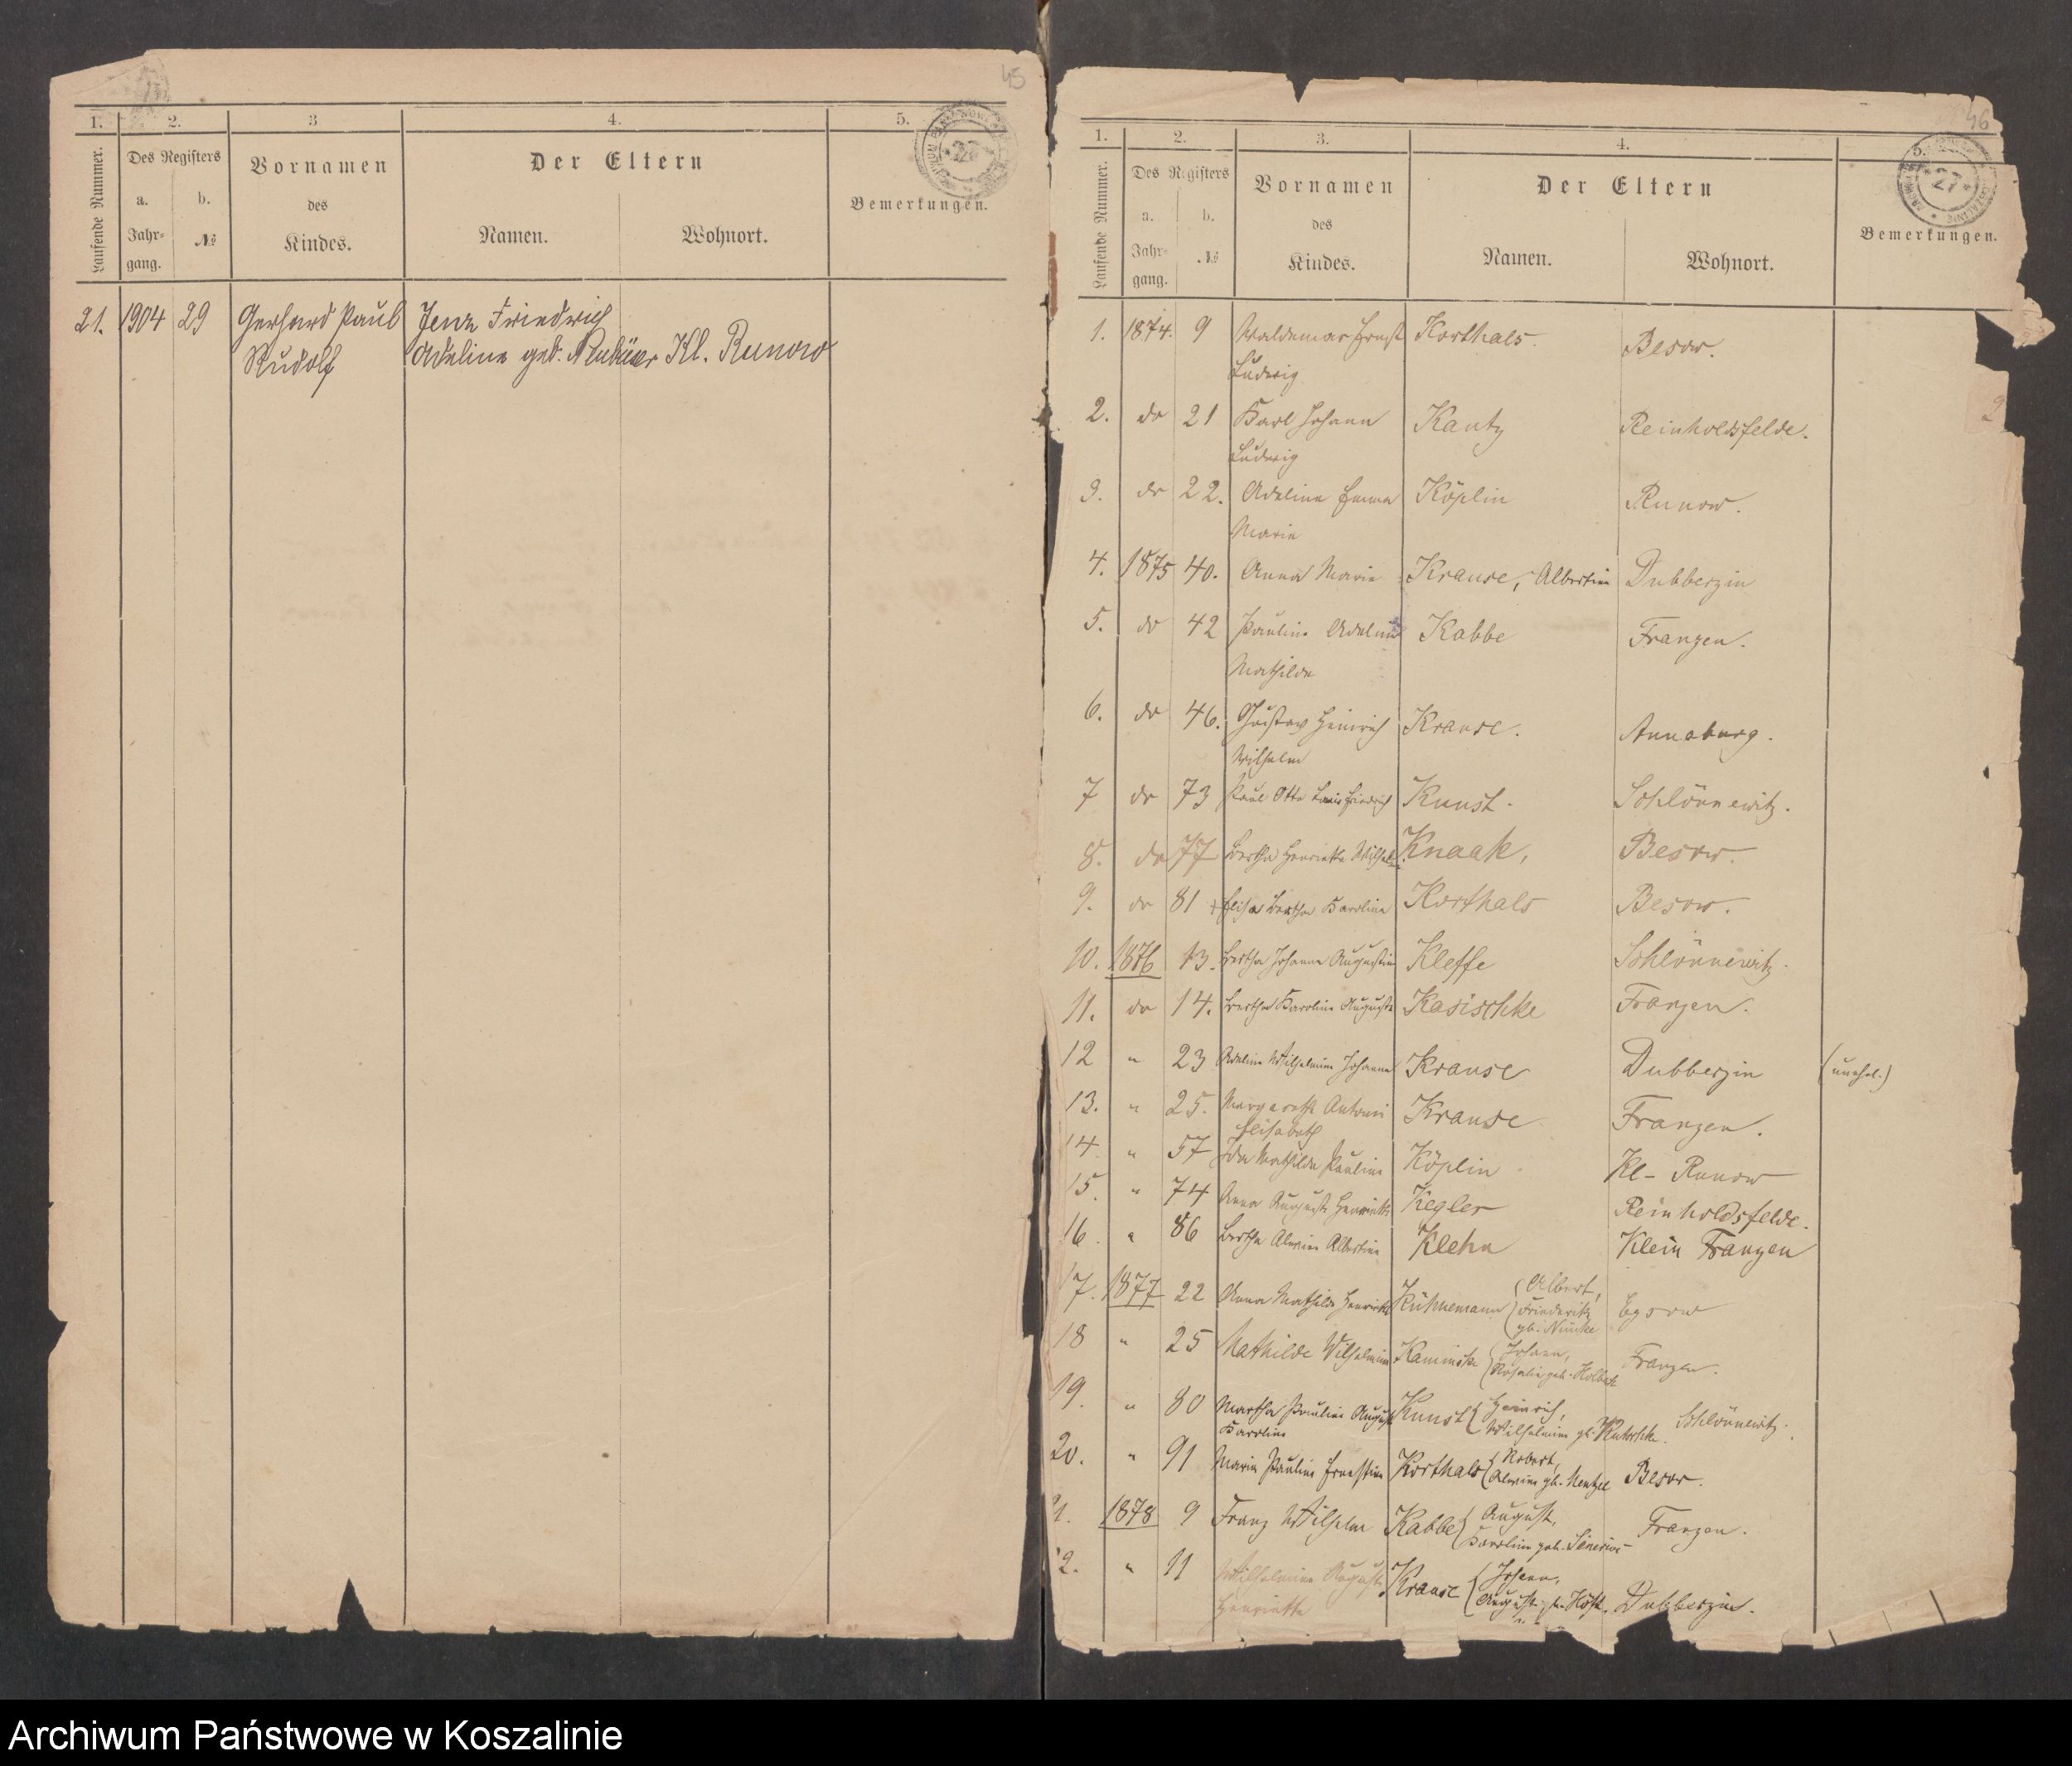 45
1. 2. 3 4. 5.
Laufende Nummer. Des Registers Vornamen Der Eltern Bemerkungen.
a. b. des
Jahr- № Kindes. Namen. Wohnort.
gang.
21. 1904 29 Gerhard Paul Jenz Friedrich
Rudolf Adeline geb. Kl. Runow
46
1. 2. 3. 4. 5.
Laufende Nummer. Des Registers Vornamen Der Eltern Bemerkungen.
a. b. des
Jahr- № Kindes. Namen. Wohnort.
gang.
1. 1874. 9 Waldemar Ernst Korthals. Besow.
Ludwig
2. do 21 Karl Johann Kautz Reinholdsfelde.
Ludwig
3. do 22. Adeline Emma Köplin Runow.
Marie
4. 1875 40. Anna Marie Krause, Albertine Dubberzin
5. do 42 Pauline Adeline Kabbe Franzen.
Mathilde
6. do 46. Gustav Heinrich Krause. Annaburg.
Wilhelm
7 do 73 Paul Otto Louis Friedrich Kunst. Schlönnewitz.
8. do 77 Bertha Henriette Wilhelm. Knaak, Besow.
9. do 81 Elise Bertha Karoline Korthals Besow.
10. 1876 13. Bertha Johanne Augustine Kleffe Schlönnewitz.
11. do 14. Bertha Karoline Auguste Kasischke Franzen.
12 " 23 Adeline Wilhelmine Johanna Krause Dubberzin (unehel.)
13. " 25. Margarethe Antonie Krause Franzen.
Elisabeth
14 " 57 Ida Mathilde Pauline Köplin Kl- Runow
15. " 74 Anna Auguste Henriette Kegler Reinholdsfelde.
16. " 86 Bertha Alwine Albertine Klehn Klein Franzen
17. 1877 22 Anna Mathilde Henriette Kühnemann Albert, Friederike gb. Egsow
18 " 25 Mathilde Wilhelmine Kaminske Johann, Rosalie geb. Franzen.
19. " 80 Martha Pauline August Kunst Heinrich, Wilhelmine gb. Schlönnewitz.
Karoline
20. " 91 Marie Pauline Ernestine Korthals Robert, Alwine gb. Mentzel Besow.
21. 1878 9 Franz Wilhelm Kabbe August, Karoline geb. Franzen.
22. " 11 Wilhelmine Auguste Krause Johann, Auguste Dubberzin.
Henriette
Archiwum Państwowe w Koszalinie